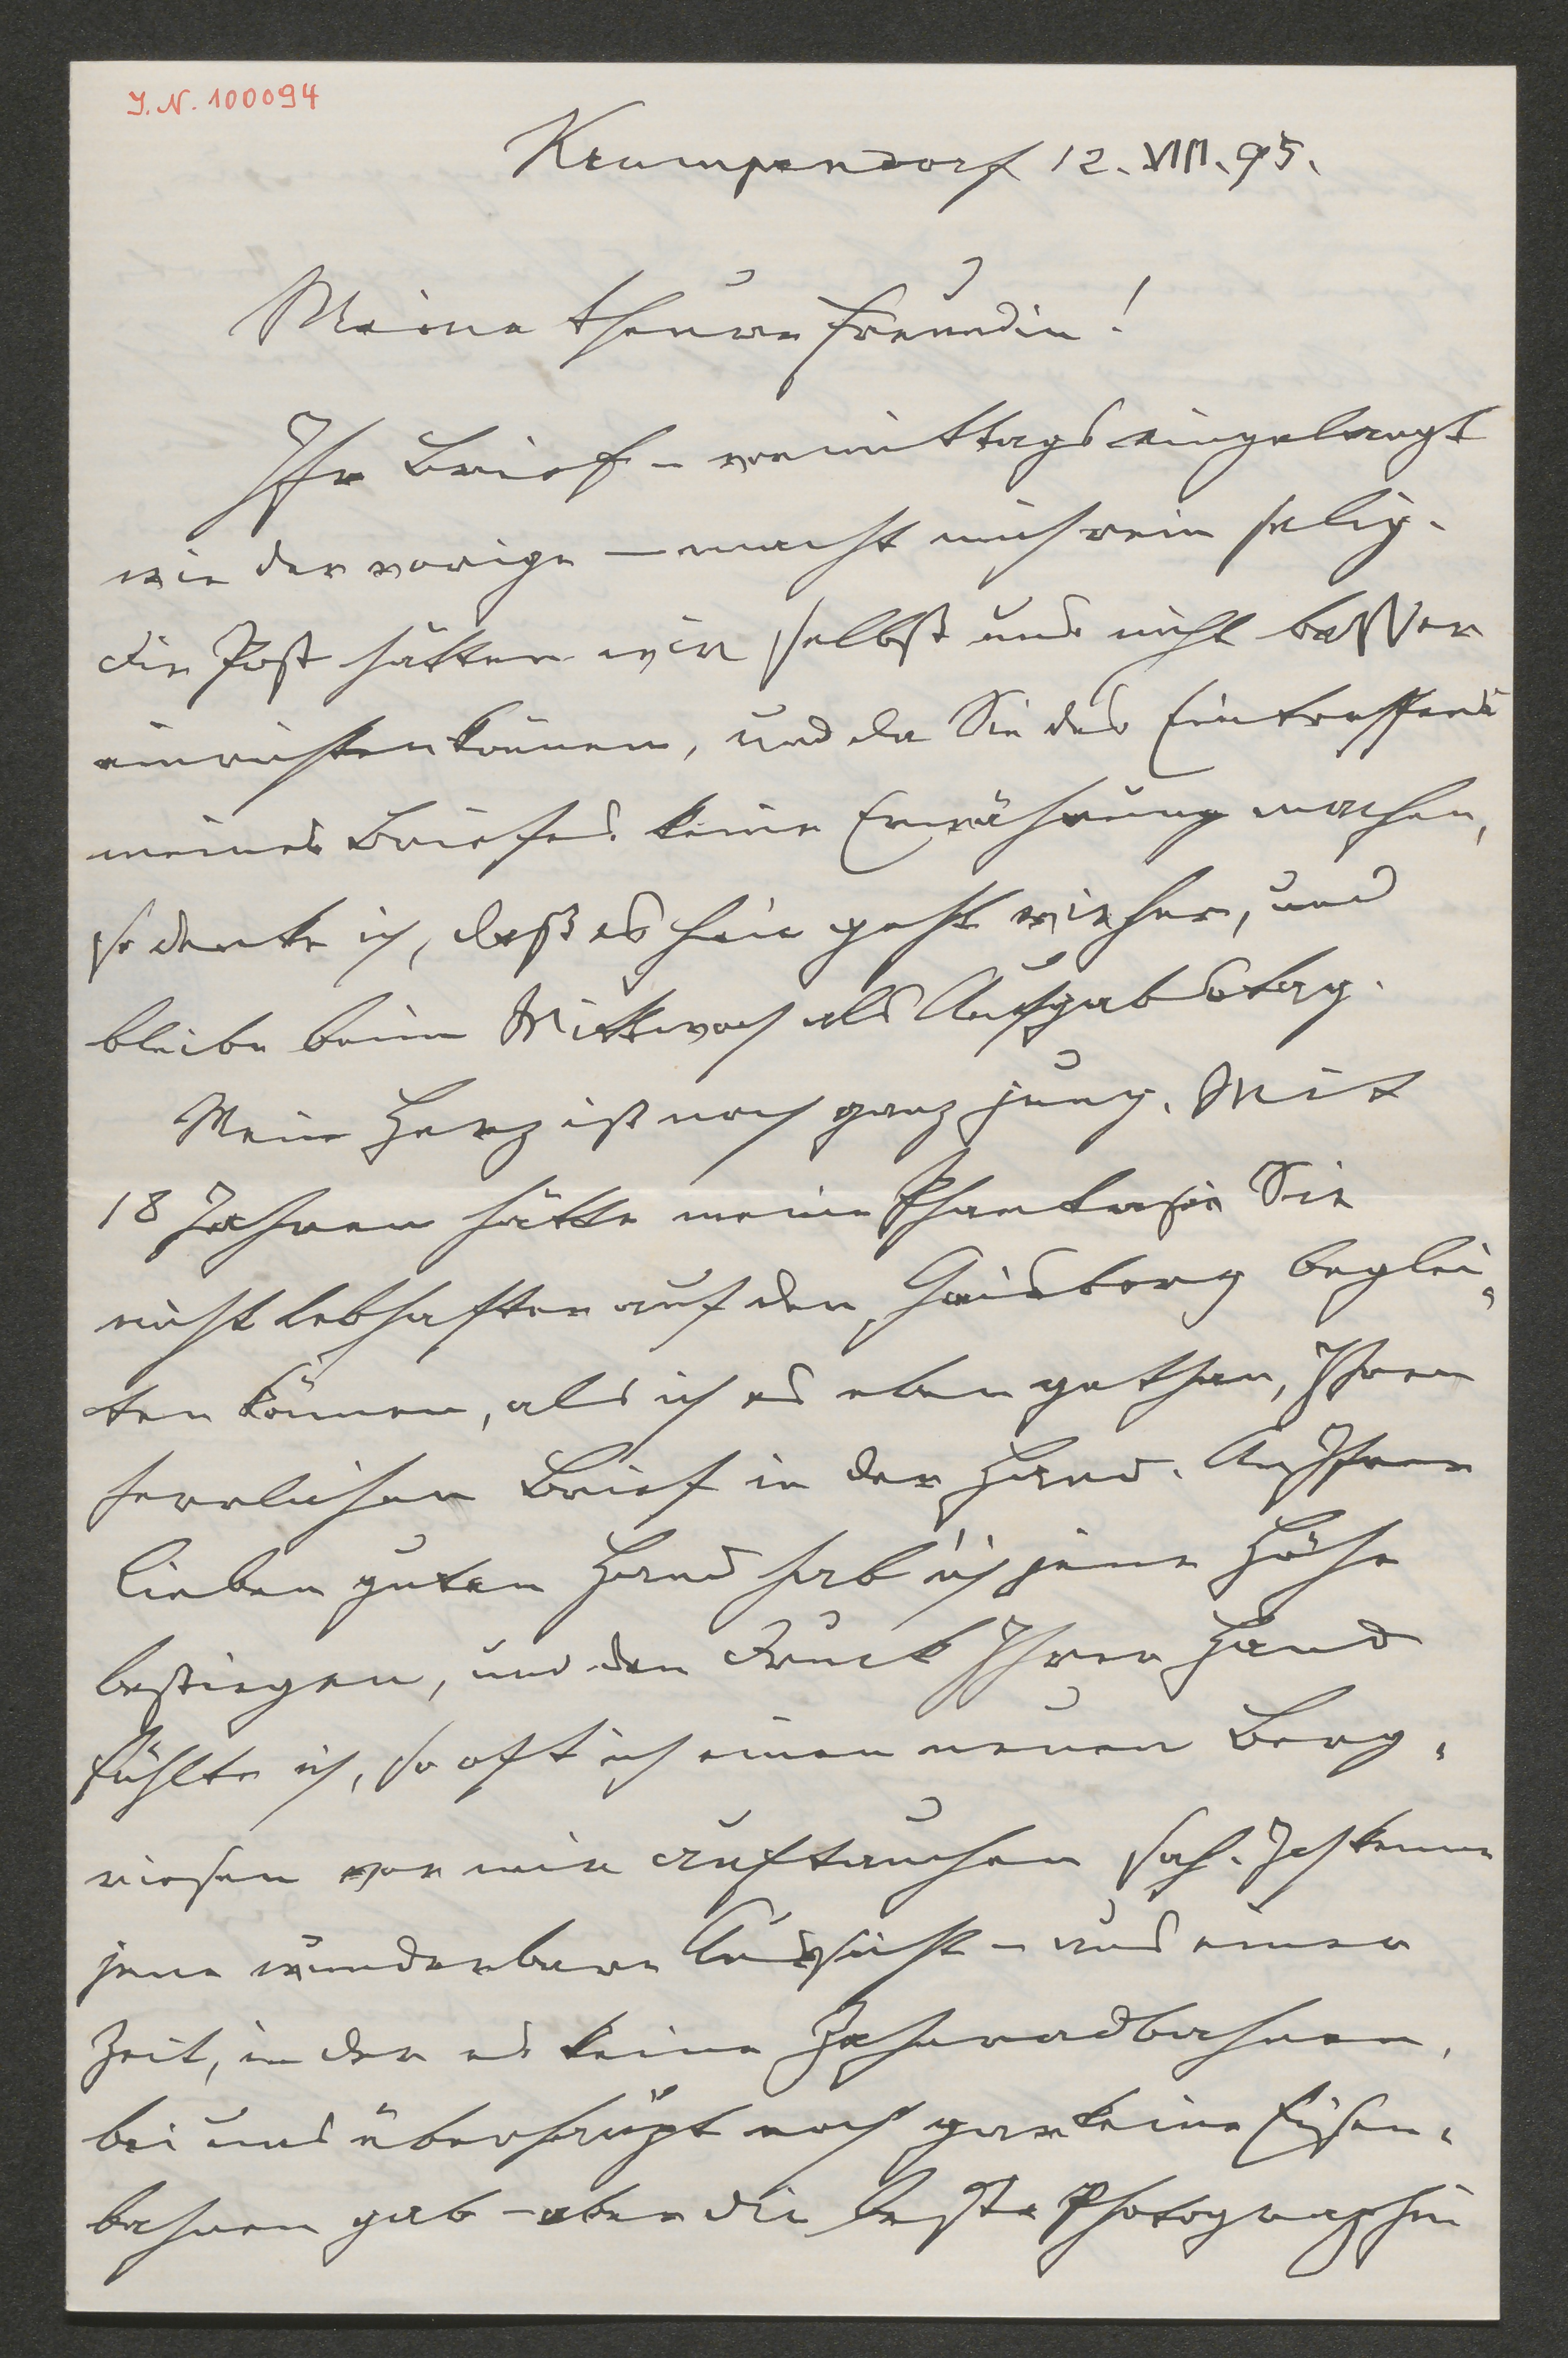 J. N. 100094
Krumpendorf 12. VIII. 95.
Meine theure Freundin!
Ihr Brief – vormittags eingelangt
wie der vorige – macht mich rein selig.
Die Post hätten wir selbst uns nicht besser
einrichten können, und da Sie des Eintreffens
meines Briefes keine Erwähnung machen,
so denke ich, daß es hin geht wie her, und
bleibe beim Mittwoch als Aufgabstag.
Mein Herz ist noch ganz jung. Mit
18 Jahren hätte meine Phantasie Sie
nicht lebhafter auf den Gaisberg beglei-
ten können, als ich es eben gethan, Ihren
herrlichen Brief in der Hand. An Ihrer
lieben guten Hand hab' ich jene Höhe
bestiegen, und den Druck Ihrer Hand
fühlte ich, so oft ich einen neuen Berg-
riesen vor mir auftauchen sah. Ich kenne
jene wunderbare Aussicht – aus einer
Zeit, in der es keine Zahnradbahnen,
bei uns überhaupt noch gar keine Eisen-
bahnen gab – aber die beste Photographie